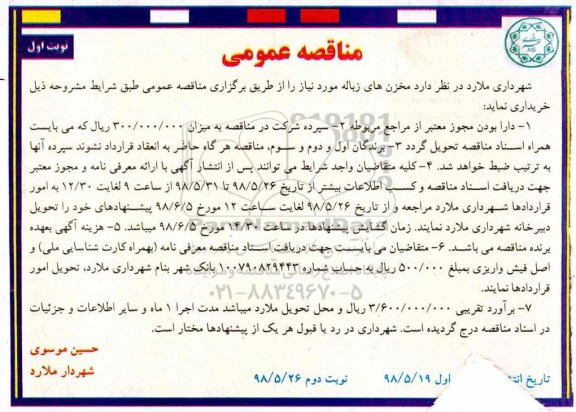 نوبت اول
مناقصه عمومی
شهرداری ملارد در نظر دارد مخزن های زباله مورد نیاز را از طریق برگزاری مناقصه عمومی طبق شرایط مشروحه ذیل
خریداری نماید:
۱- دارا بودن مجوز معتبر از مراجع مربوطه ۲- سپرده شرکت در مناقصه به میزان ۳۰۰/۰۰۰/۰۰۰ ریال که می بایست
همراه اسناد مناقصه تحویل گردد ۳- برندگان اول و دوم و سوم، مناقصه هر گاه حاضر به انعقاد قرارداد نشوند سپرده آنها
به ترتیب ضبط خواهد شد. ۴- کلیه متقاضیان واجد شرایط می توانند پس از انتشار آگهی با ارائه معرفی نامه و مجوز معتبر
جهت دریافت اسناد مناقصه و کسب اطلاعات بیشتر از تاریخ ۹۸/۵/۲۶ تا ۹۸/۵/۳۱ از ساعت ۹ لغایت ۱۲/۳۰ به امور
قراردادها شهرداری ملارد مراجعه و از تاریخ ۹۸/۵/۲۶ لغایت ساعت ۱۲ مورخ ۹۸/۶/۵ پیشنهادهای خود را تحویل
دبیرخانه شهرداری ملارد نمایند. زمان گشایش پیشنهادها در ساعت ۱۴/۳۰ مورخ ۹۸/۶/۵ میباشد. ۵- هزینه آگهی بعهده
برنده مناقصه می باشد. ۶- متقاضیان می بایست جهت دریافت اسناد مناقصه معرفی نامه (بهمراه کارت شناسایی ملی) و
اصل فیش واریزی بمبلغ ۵۰۰/۰۰۰ ریال به حساب شماره ۱۰۰۷۹۰۸۲۹۴۴۳ بانک شهر بنام شهرداری ملارد، تحویل امور
قراردادها نمایند.
۰۲۱-۸۸۳۴۹۶۷۰-۵
۷- برآورد تقریبی ۳/۶۰۰/۰۰۰/۰۰۰ ریال و محل تحویل ملارد میباشد مدت اجرا ۱ ماه و سایر اطلاعات و جزئیات
در اسناد مناقصه درج گردیده است. شهرداری در رد یا قبول هر یک از پیشنهادها مختار است.
حسین موسوی
شهردار ملارد
تاریخ اول ۹۸/۵/۱۹ نوبت دوم ۹۸/۵/۲۶